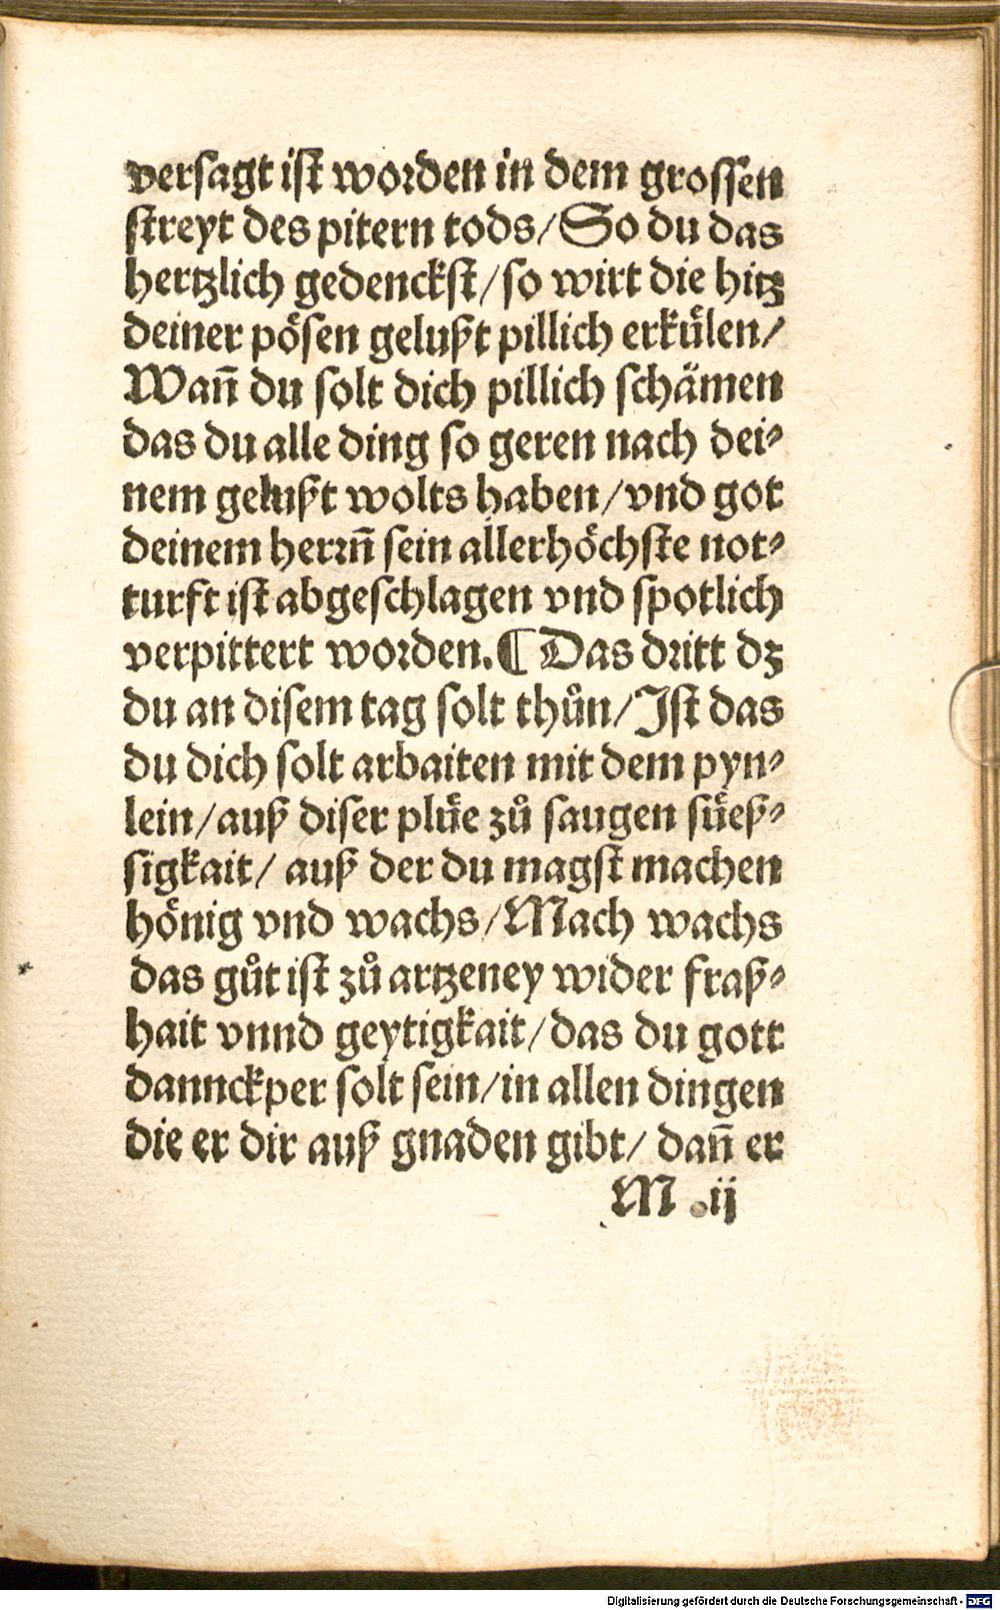 versagt ist worden in dem grossen
streyt des pitern tods/So du das
hertzlich gedenckst/so wirt die hitz
deiner pösen gelußt pillich erkülen/
Wañ du solt dich pillich schämen
das du alle ding so geren nach dei⸗
nem gelußt wolts haben/vnd got
deinem herrñ sein allerhöchste not⸗
turft ist abgeschlagen vnd spotlich
verpittert worden.¶ Das dritt dz
du an disem tag solt thůn/Ist das
du dich solt arbaiten mit dem pyn⸗
lein/auß diser plüe zů saugen süeß⸗
sigkait/ auß der du magst machen
hönig vnd wachs/Mach wachs
das gůt ist zů artzeney wider fraß⸗
hait vnnd geytigkait/das du gott
dannckper solt sein/in allen dingen
die er dir auß gnaden gibt/ dañ er
M .ij
Digitalisierung gefördert durch die Deutsche Forschungsgemeinschaft - DFG